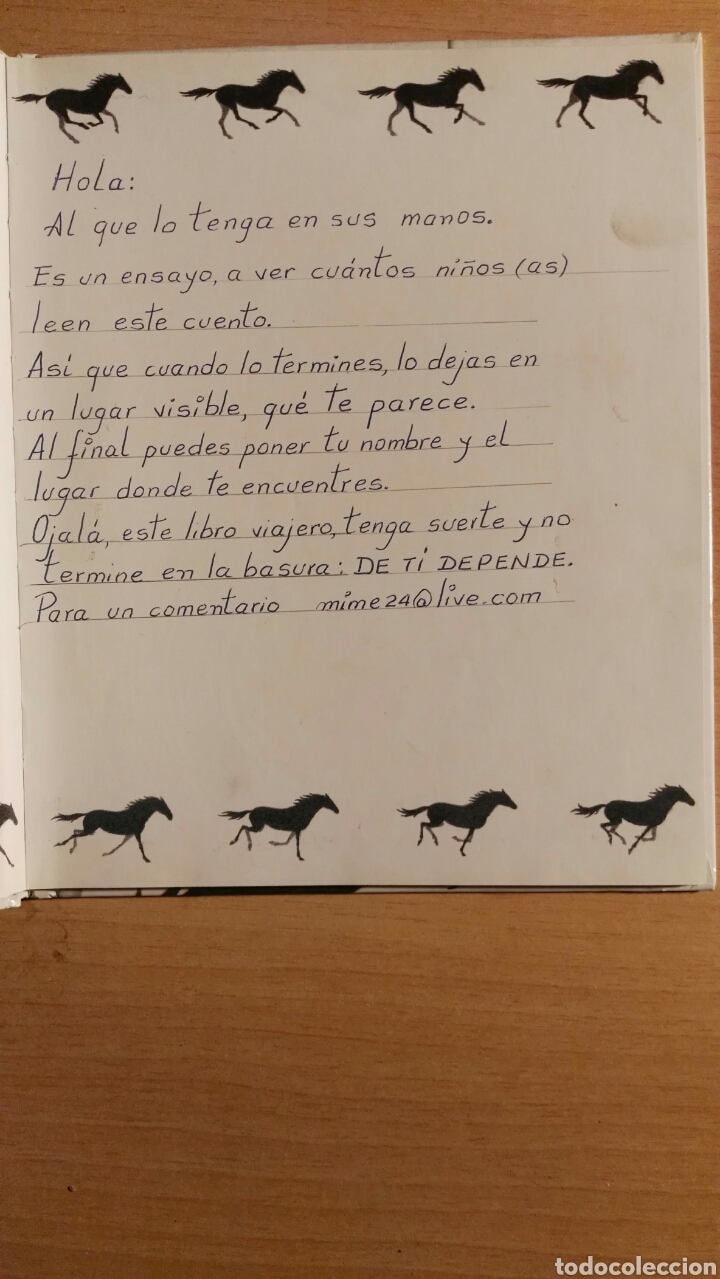 Hola:
Al que lo tenga en sus manos.
Es un ensayo, a ver cuántos niños (as)
leen este cuento.
Así que cuando lo termines, lo dejas en
un lugar visible, qué te parece.
Al final puedes poner tu nombre y el
lugar donde te encuentres.
Ojalá, este libro viajero, tenga suerte y no
termine en la basura: DE TÍ DEPENDE.
Para un comentario mime24@live.com
todocoleccion